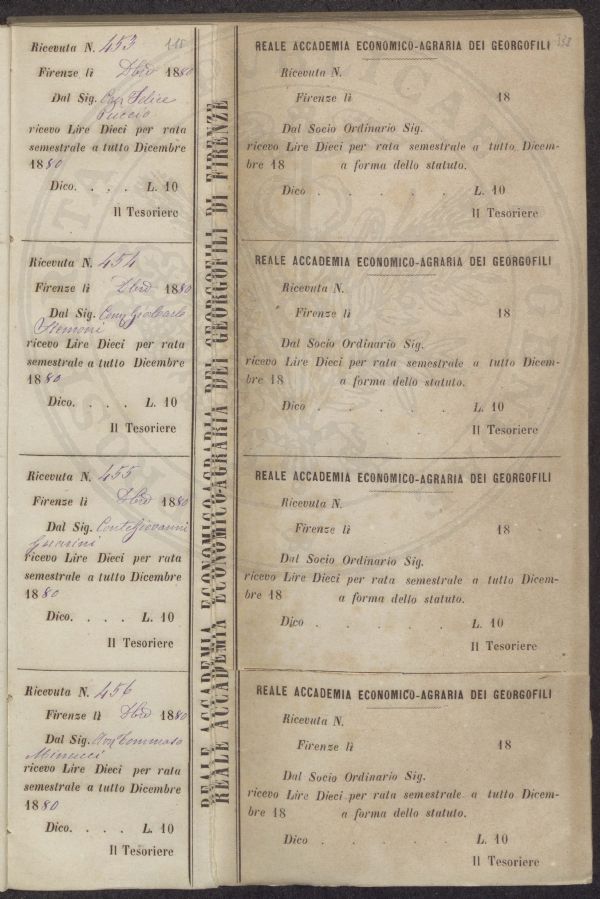 Ricevuta N. 453
Firenze lì Xbre 1880
Dal Sig. Felice
Puccio
ricevo Lire Dieci per rata
semestrale a tutto Dicembre
1880
Dico. . . . L. 10
Il Tesoriere
Ricevuta N. 454
Firenze lì Xbre 1880
Dal Sig. Comm Gio Carlo
Siemoni
ricevo Lire Dieci per rata
semestrale a tutto Dicembre
1880
Dico. . . . L. 10
Il Tesoriere
Ricevuta N. 455
Firenze lì Xbre 1880
Dal Sig. Conte Giovanni
Guarini
ricevo Lire Dieci per rata
semestrale a tutto Dicembre
1880
Dico. . . . L. 10
Il Tesoriere
Ricevuta N. 456
Firenze lì Xbre 1880
Dal Sig. Tommaso
Minucci
ricevo Lire Dieci per rata
semestrale a tutto Dicembre
1880
Dico. . . . L. 10
Il Tesoriere
REALE ACCADEMIA ECONOMICO-AGRARIA DEI GEORGOFILI DI FIRENZE
REALE ACCADEMIA ECONOMICO-AGRARIA DEI GEORGOFILI DI FIRENZE
REALE ACCADEMIA ECONOMICO-AGRARIA DEI GEORGOFILI
Ricevuta N.
Firenze lì 18
Dal Socio Ordinario Sig.
ricevo Lire Dieci per rata semestrale a tutto Dicem-
bre 18 a forma dello statuto.
Dico . . . . . L. 10
Il Tesoriere
REALE ACCADEMIA ECONOMICO-AGRARIA DEI GEORGOFILI
Ricevuta N.
Firenze lì 18
Dal Socio Ordinario Sig.
ricevo Lire Dieci per rata semestrale a tutto Dicem-
bre 18 a forma dello statuto.
Dico . . . . . L. 10
Il Tesoriere
REALE ACCADEMIA ECONOMICO-AGRARIA DEI GEORGOFILI
Ricevuta N.
Firenze lì 18
Dal Socio Ordinario Sig.
ricevo Lire Dieci per rata semestrale a tutto Dicem-
bre 18 a forma dello statuto.
Dico . . . . . L. 10
Il Tesoriere
REALE ACCADEMIA ECONOMICO-AGRARIA DEI GEORGOFILI
Ricevuta N.
Firenze lì 18
Dal Socio Ordinario Sig.
ricevo Lire Dieci per rata semestrale a tutto Dicem-
bre 18 a forma dello statuto.
Dico . . . . . L. 10
Il Tesoriere